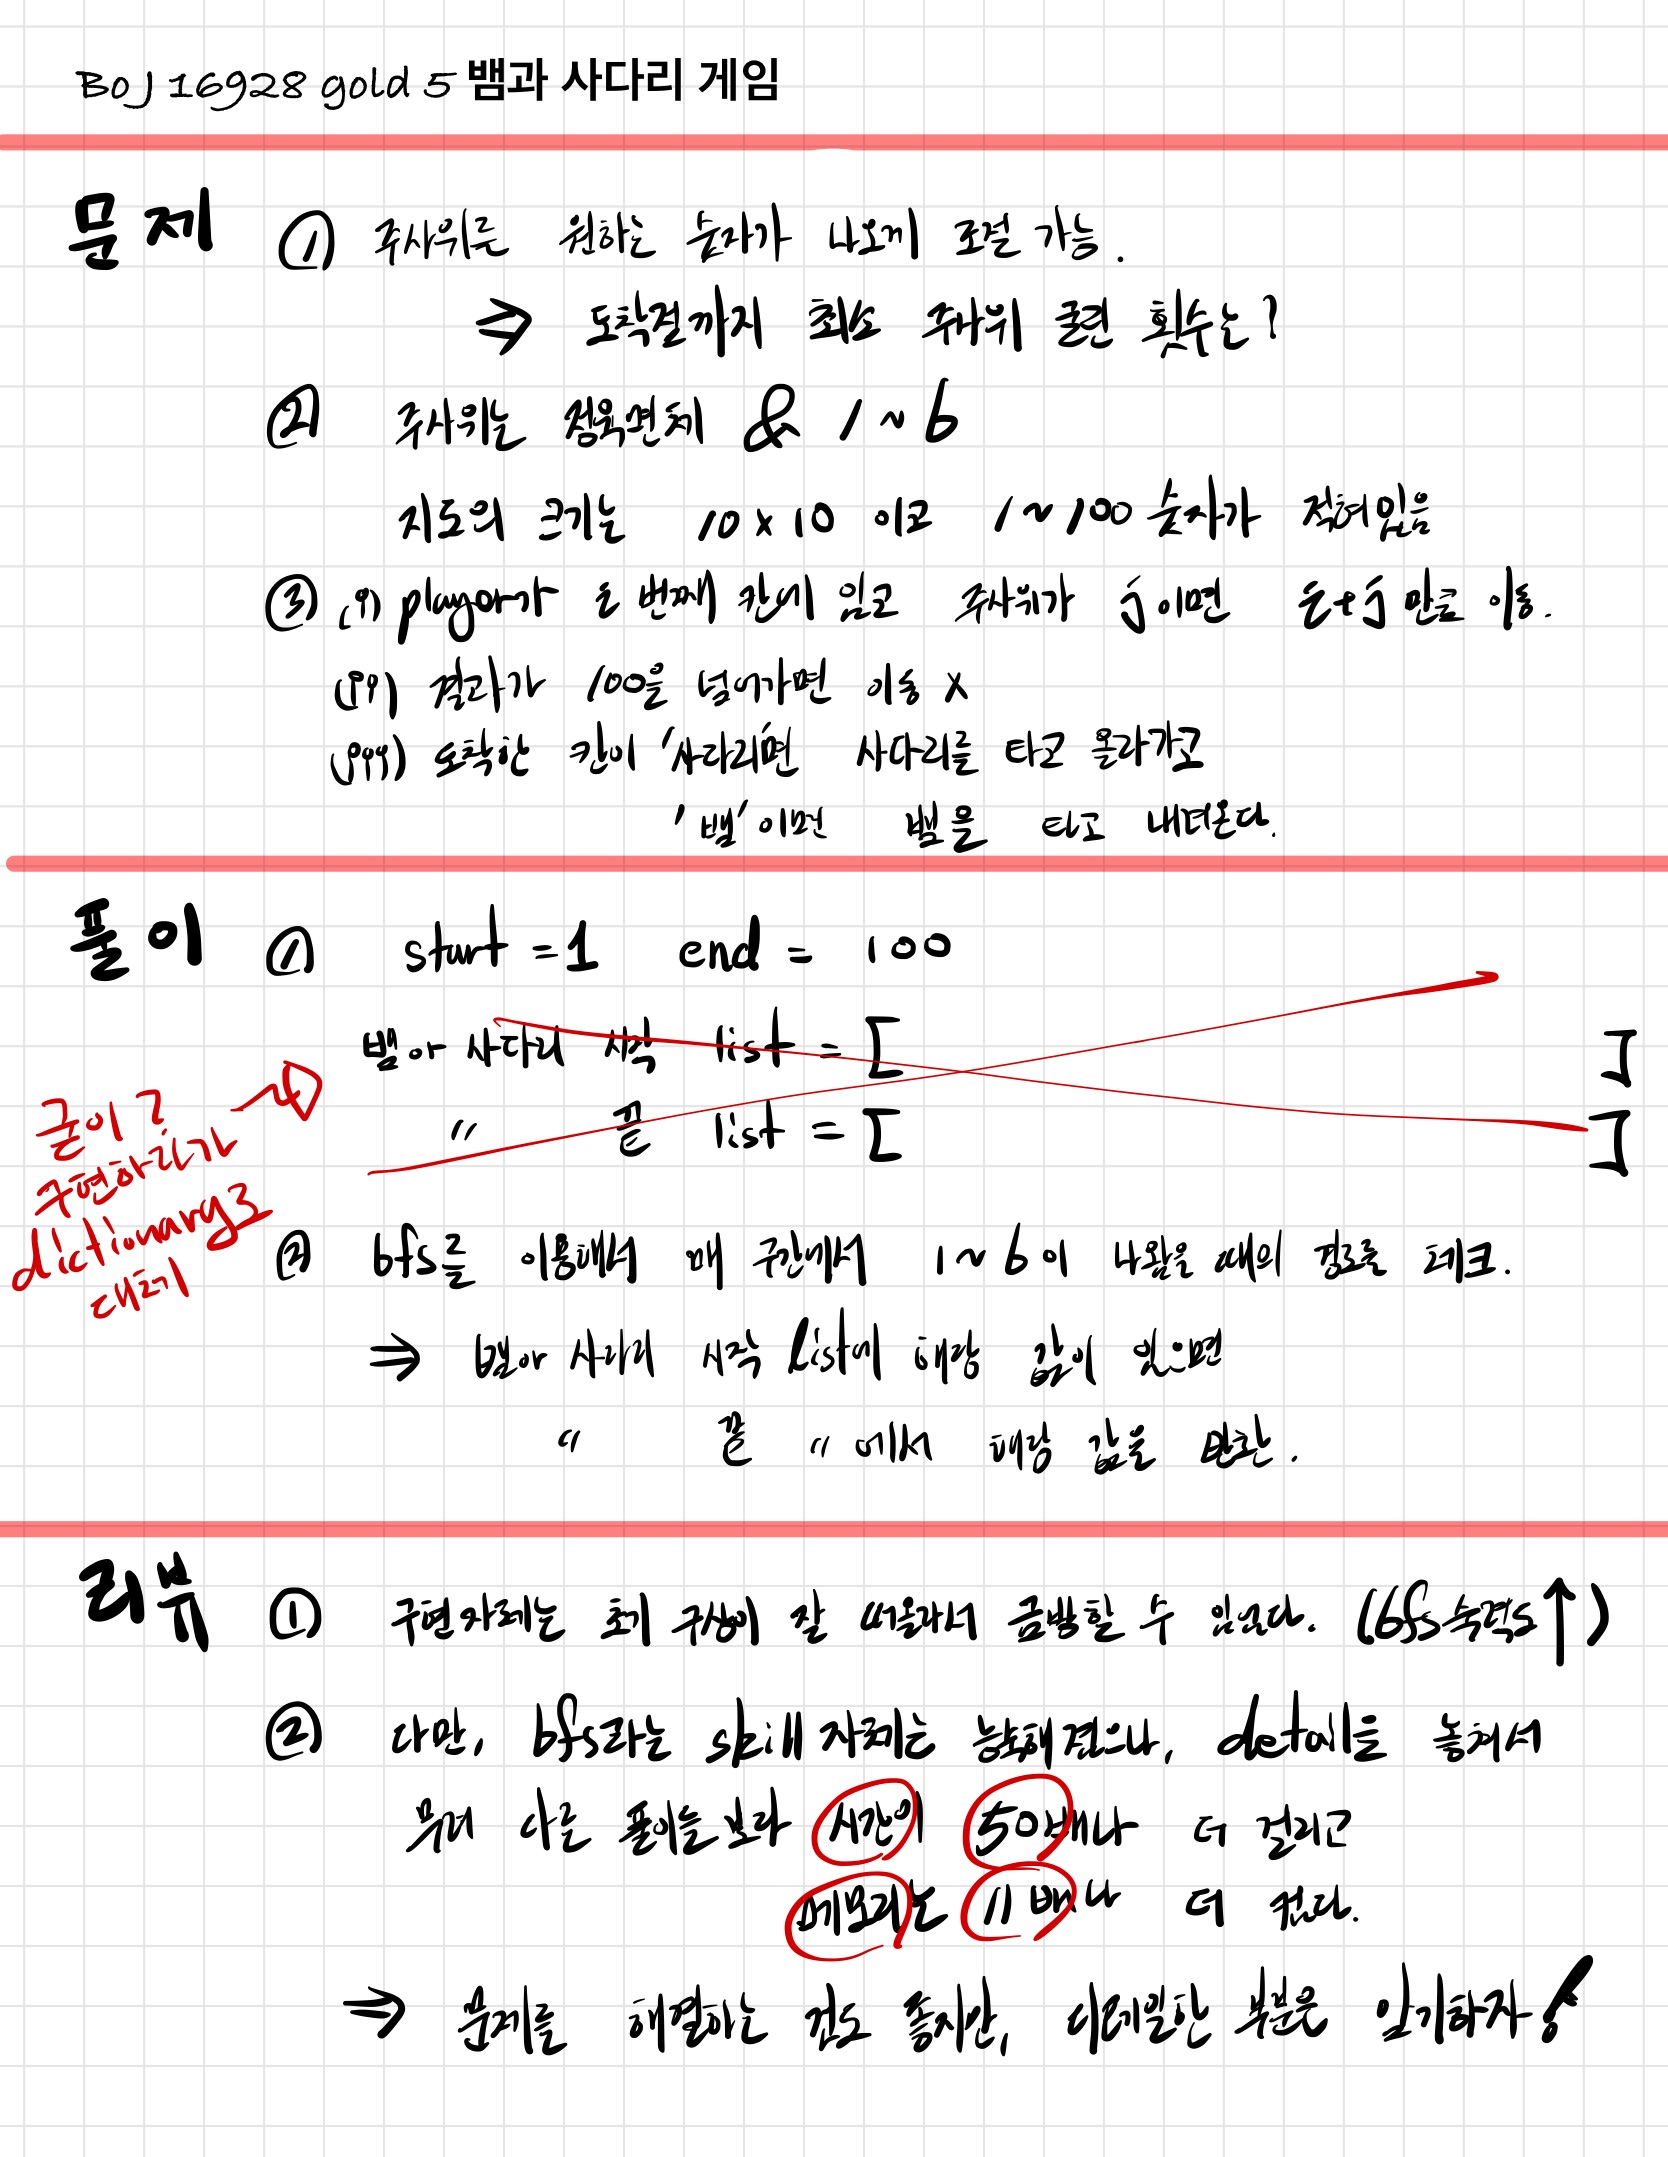 BOJ 16928 gold 5 뱀과 사다리 게임
문제 ① 주사위를 원하는 숫자가 나오게 조절 가능.
⇒ 도착점까지 최소 주사위 굴린 횟수는?
② 주사위는 정육면체 & 1~6
지도의 크기는 10 x 10 이고 1~100 숫자가 적혀있음
③ (i) player가 i 번째 칸에 있고 주사위가 j이면 i+j 만큼 이동.
(ii) 결과가 100을 넘어가면 이동 X
(iii) 도착한 칸이 '사다리'면 사다리를 타고 올라가고
'뱀'이면 뱀을 타고 내려온다.
풀이 ① start = 1 end = 100
뱀아 사다리 시작 list = [ ]
" 끝 list = [ ]
굳이?
구현하다가
dictionary로
대체
② bfs를 이용해서 매 구간에서 1~6이 나왔을 때의 경로를 체크.
⇒ 뱀아 사다리 시작 list에 해당 값이 있으면
" 끝 " 에서 해당 값을 반환.
리뷰 ① 구현 자체는 초기 구상이 잘 떠올라서 금방할 수 있었다. (bfs숙력s↑)
② 다만, bfs라는 skill 자체는 능숙해졌으나, detail을 놓쳐서
무려 다른 풀이들보다 시간이 50배나 더 걸리고
메모리는 11배나 더 컸다.
⇒ 문제를 해결하는 건도 좋지만, 디테일한 부분은 암기하자!